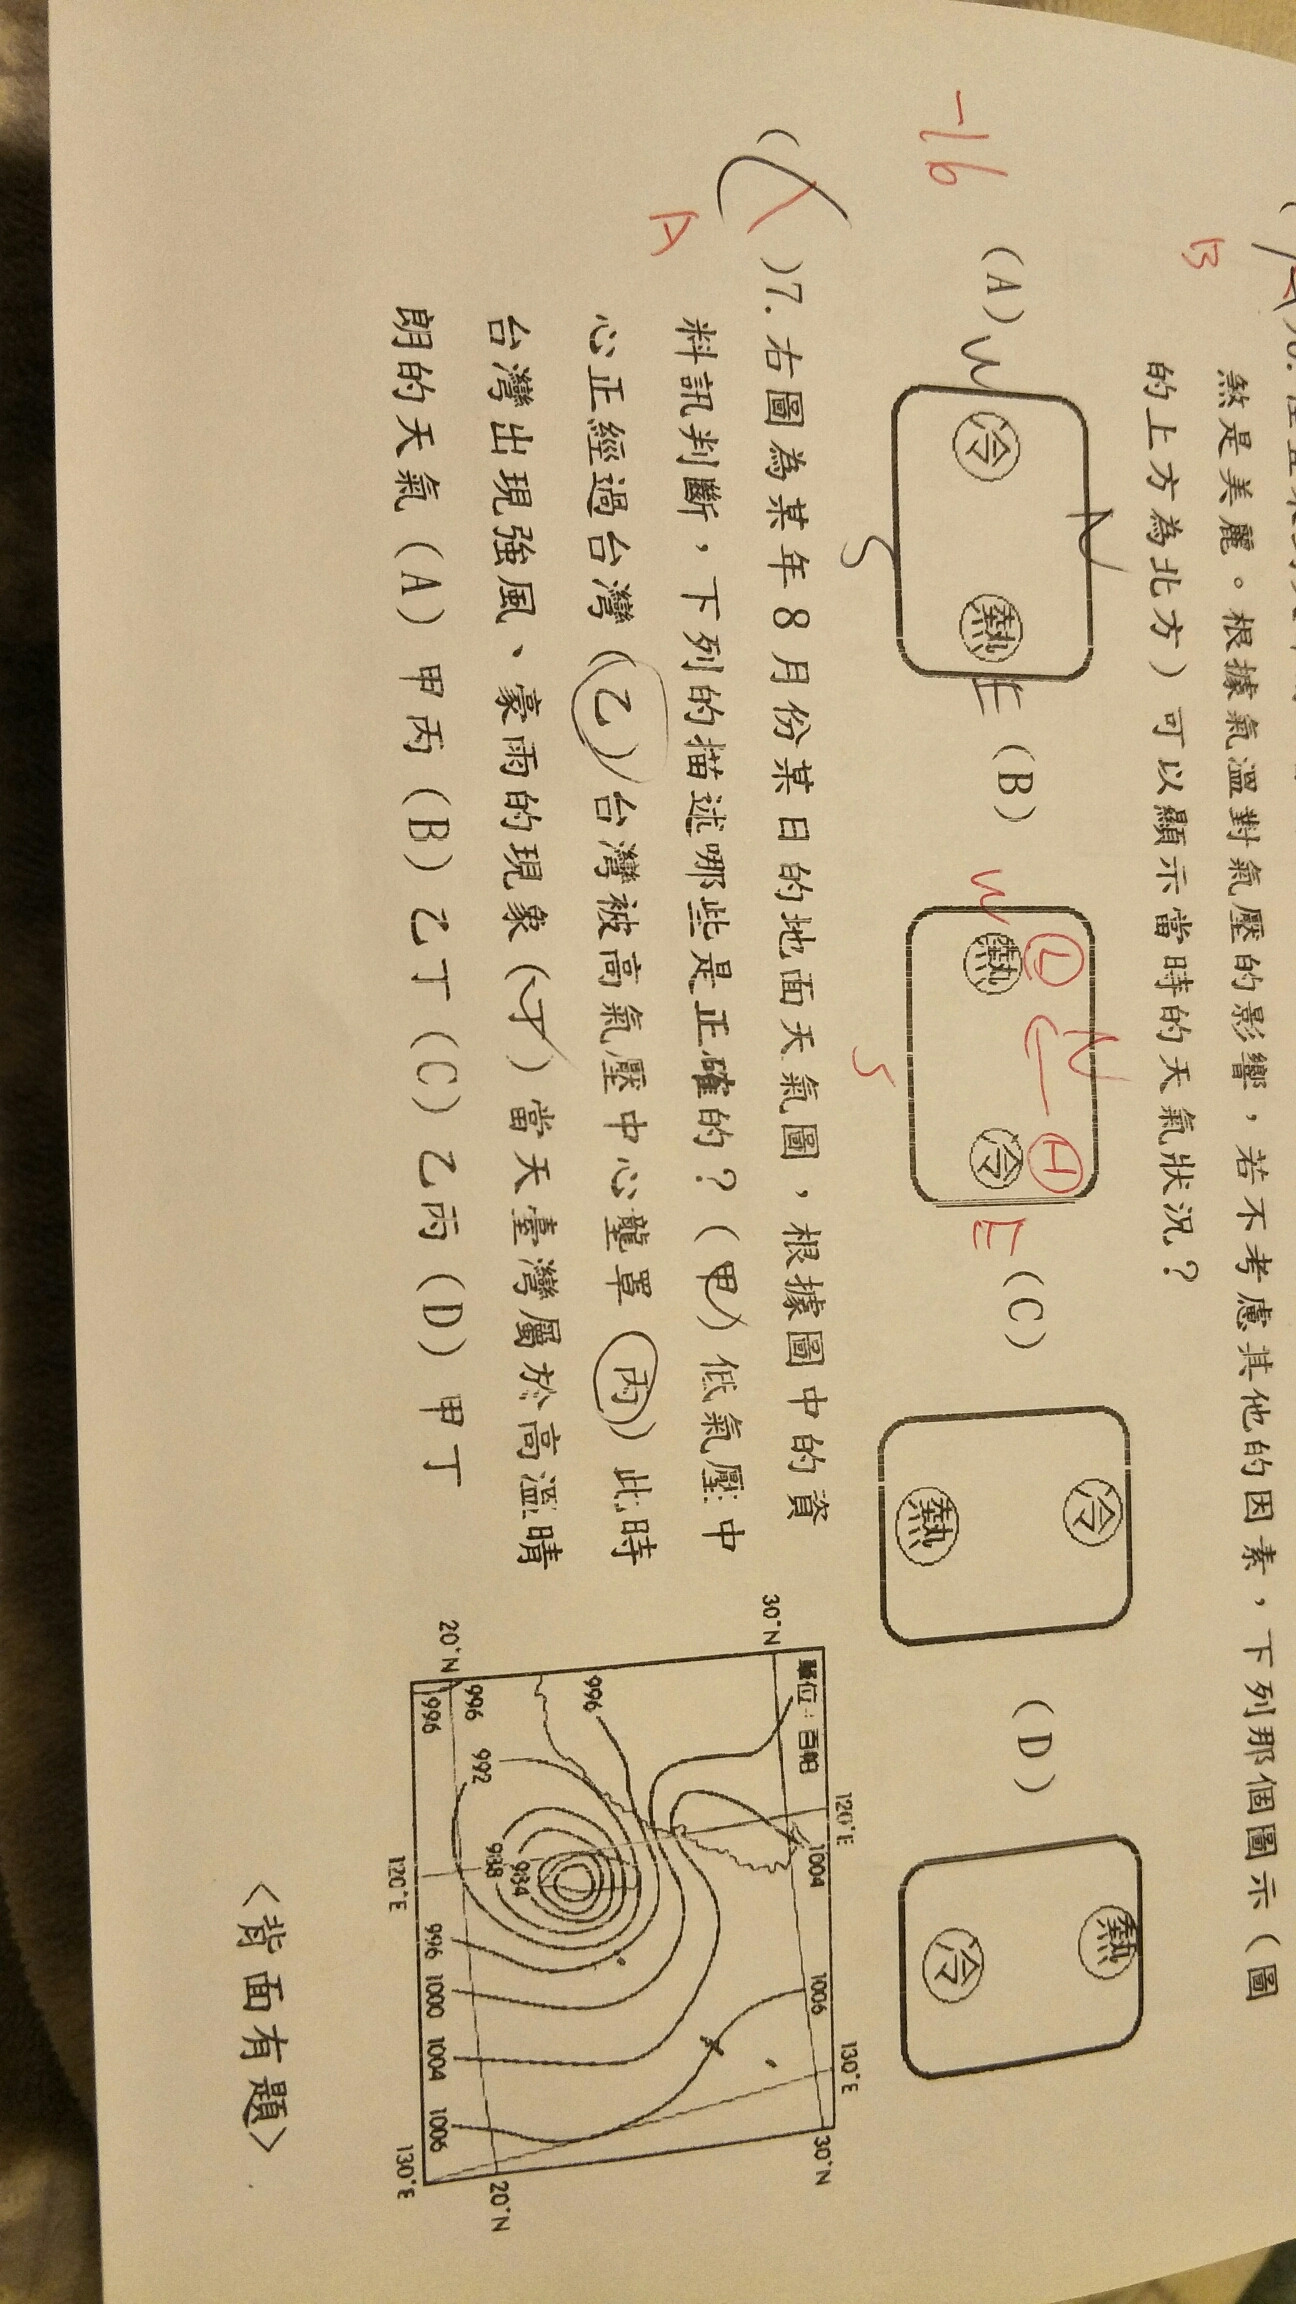 煞是美麗。根據氣溫對氣壓的影響，若不考慮其他的因素，下列那個圖示（圖
的上方為北方）可以顯示當時的天氣狀況？
B
-16
(A) W 冷 熱 E N S
(B) W 熱 冷 E N S L H
(C) 冷 熱
(D) 熱 冷
A
( )7. 右圖為某年8月份某日的地面天氣圖，根據圖中的資
料訊判斷，下列的描述哪些是正確的？（甲）低氣壓中
心正經過台灣（乙）台灣被高氣壓中心壟罩（丙）此時
台灣出現強風、豪雨的現象（丁）當天臺灣屬於高溫晴
朗的天氣 (A) 甲丙 (B) 乙丁 (C) 乙丙 (D) 甲丁
單位：百帕
120°E
130°E
30°N
1004
1006
30°N
996
20°N
996
992
988
984
996
996
1000
1004
1006
20°N
120°E
130°E
<背面有題>